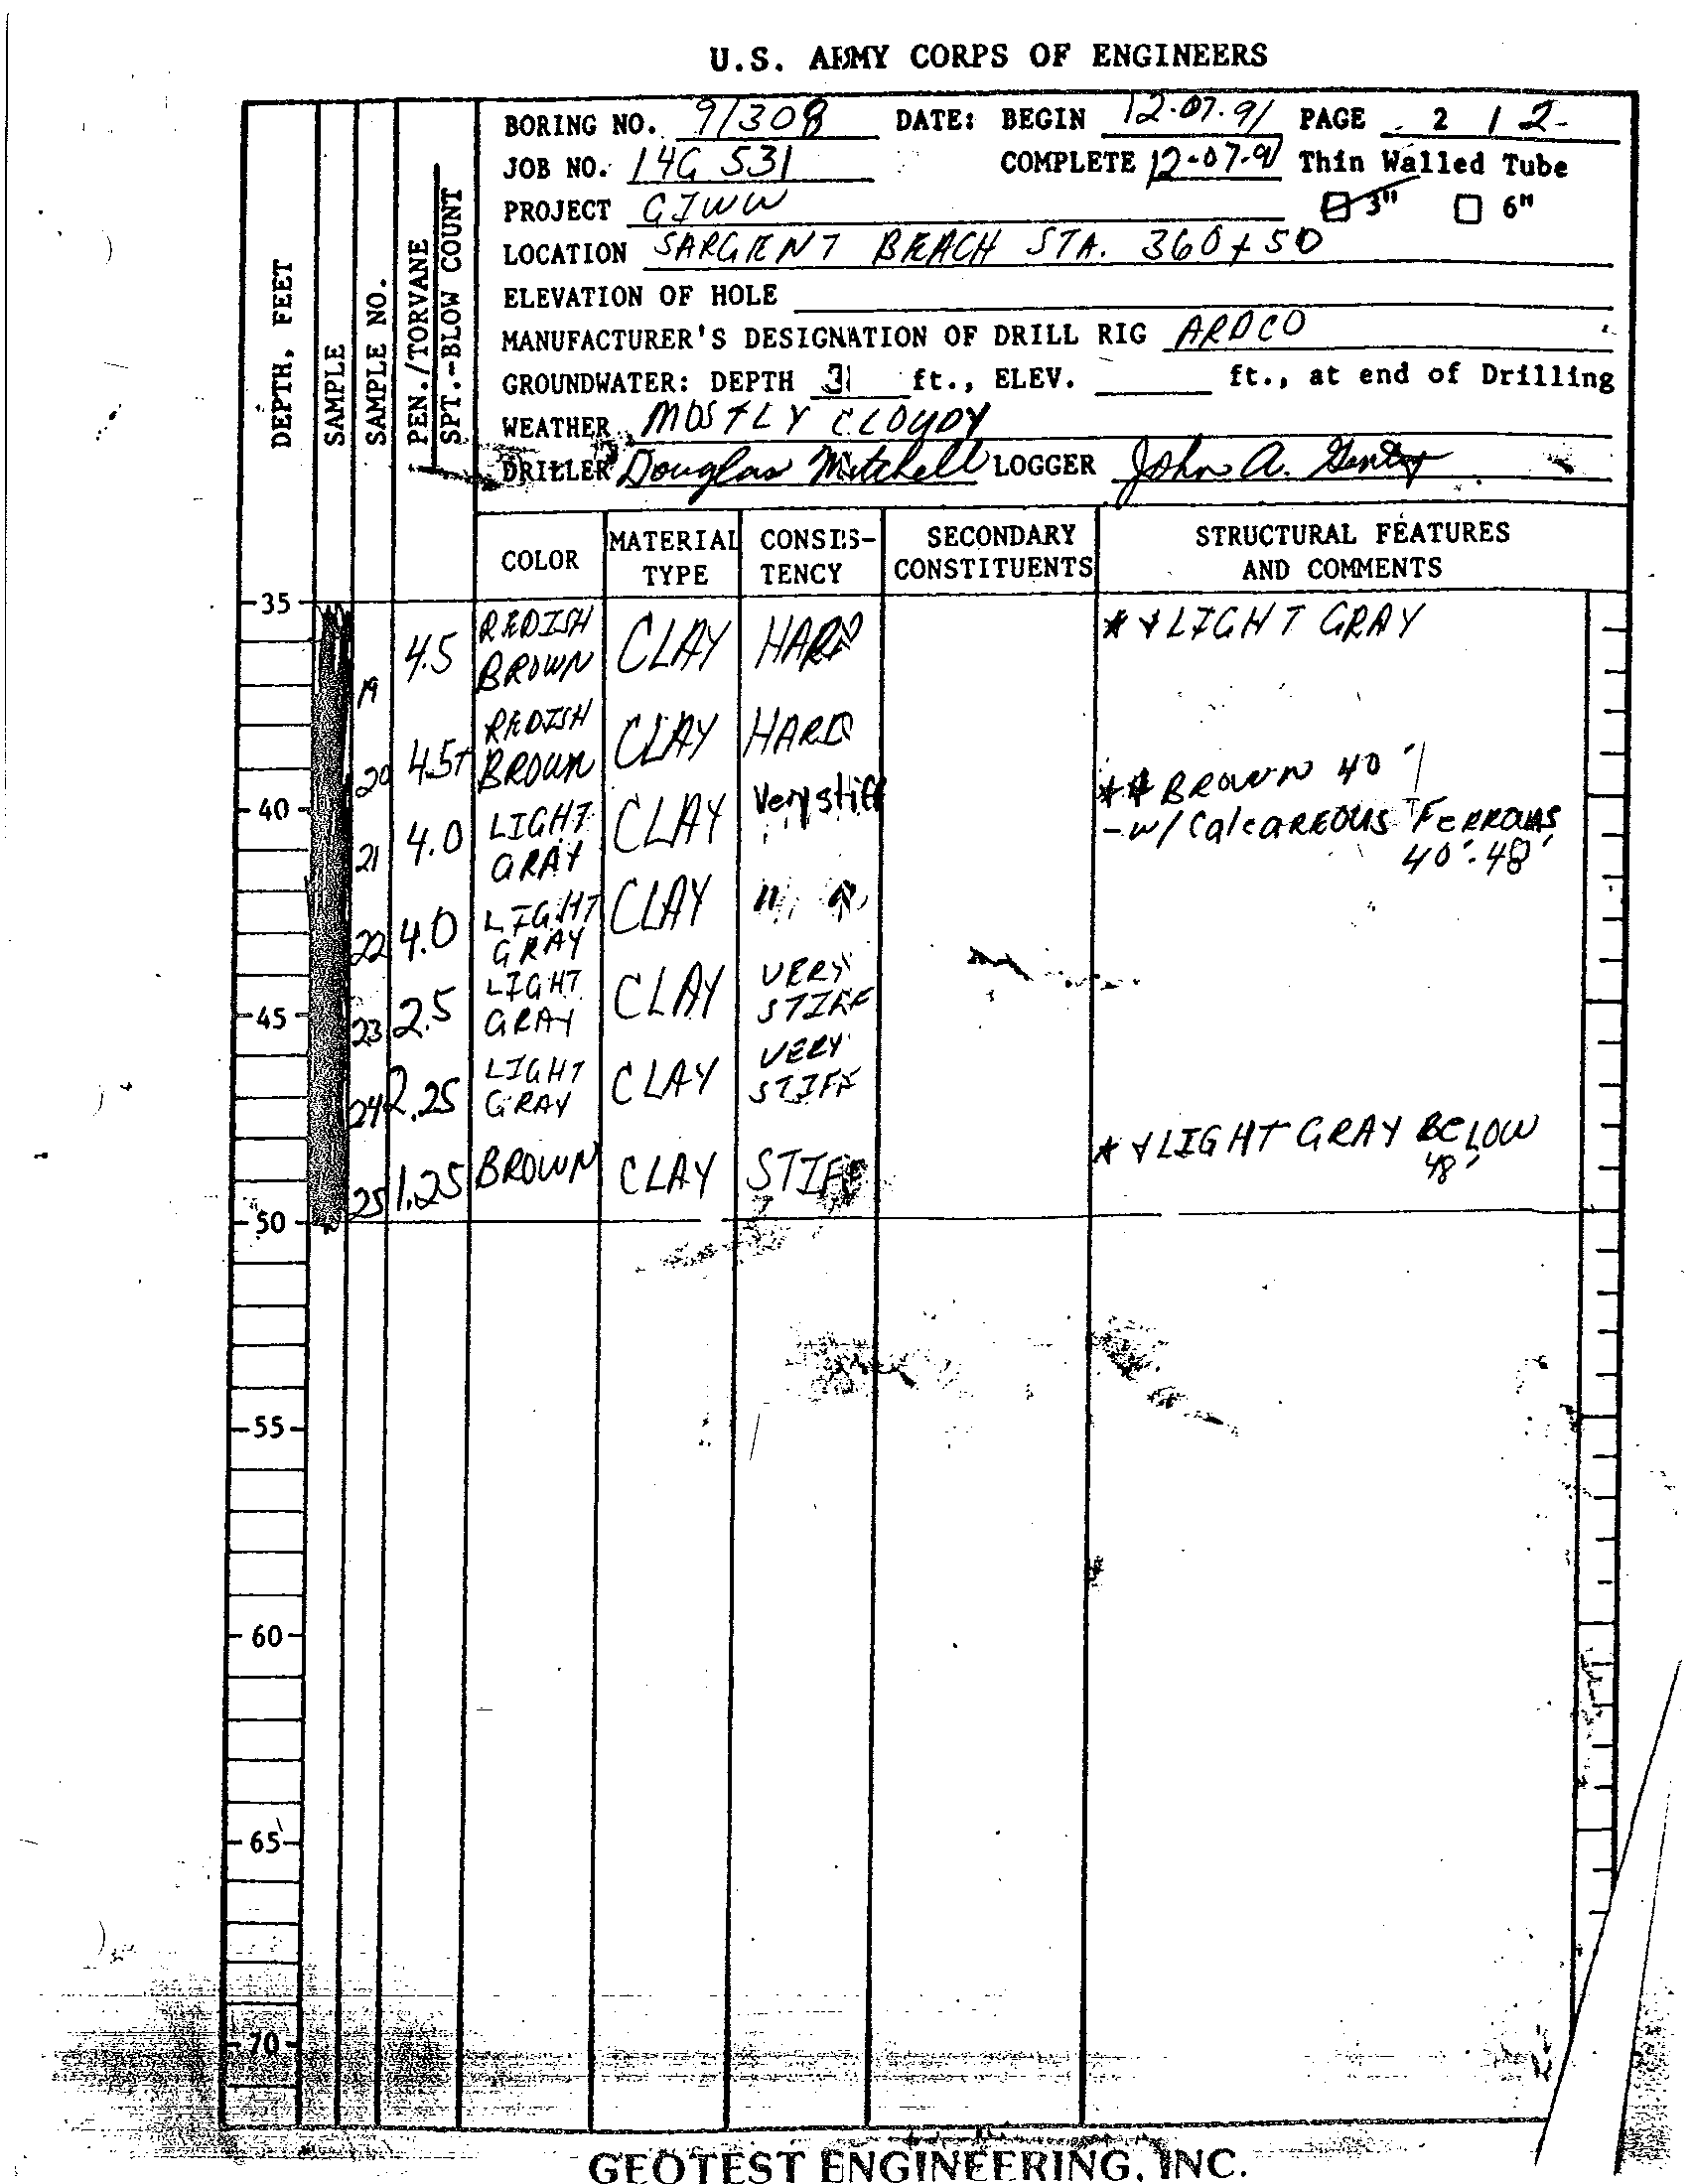 U.S. ARMY CORPS OF ENGINEERS
BORING NO. 91308 DATE: BEGIN 12-07-91 PAGE 2 / 2
JOB NO. 14G 531 COMPLETE 12-07-91 Thin Walled Tube
PROJECT GIWW 3" 6"
LOCATION SARGENT BEACH STA. 360+50
ELEVATION OF HOLE
MANUFACTURER'S DESIGNATION OF DRILL RIG ARDCO
GROUNDWATER: DEPTH 31 ft., ELEV. ft., at end of Drilling
WEATHER MOSTLY CLOUDY
DRILLER Douglas Mitchell LOGGER John A. Gentry
DEPTH, FEET
SAMPLE
SAMPLE NO.
PEN./TORVANE
SPT.-BLOW COUNT
COLOR MATERIAL CONSIS- SECONDARY STRUCTURAL FEATURES
TYPE TENCY CONSTITUENTS AND COMMENTS
35
REDISH
19 4.5 BROWN CLAY HARD * & LIGHT GRAY
REDISH
20 4.5+ BROWN CLAY HARD
** BROWN 40'
40
21 4.0 LIGHT CLAY Very stiff - w/ CalCAREOUS FERROUS
GRAY 40'-48'
22 4.0 LIGHT CLAY " "
GRAY
45
23 2.5 LIGHT CLAY VERY
GRAY STIFF
24 2.25 LIGHT CLAY VERY
GRAY STIFF
25 1.25 BROWN CLAY STIFF * & LIGHT GRAY BELOW
48'
50
55
60
65
70
GEOTEST ENGINEERING, INC.